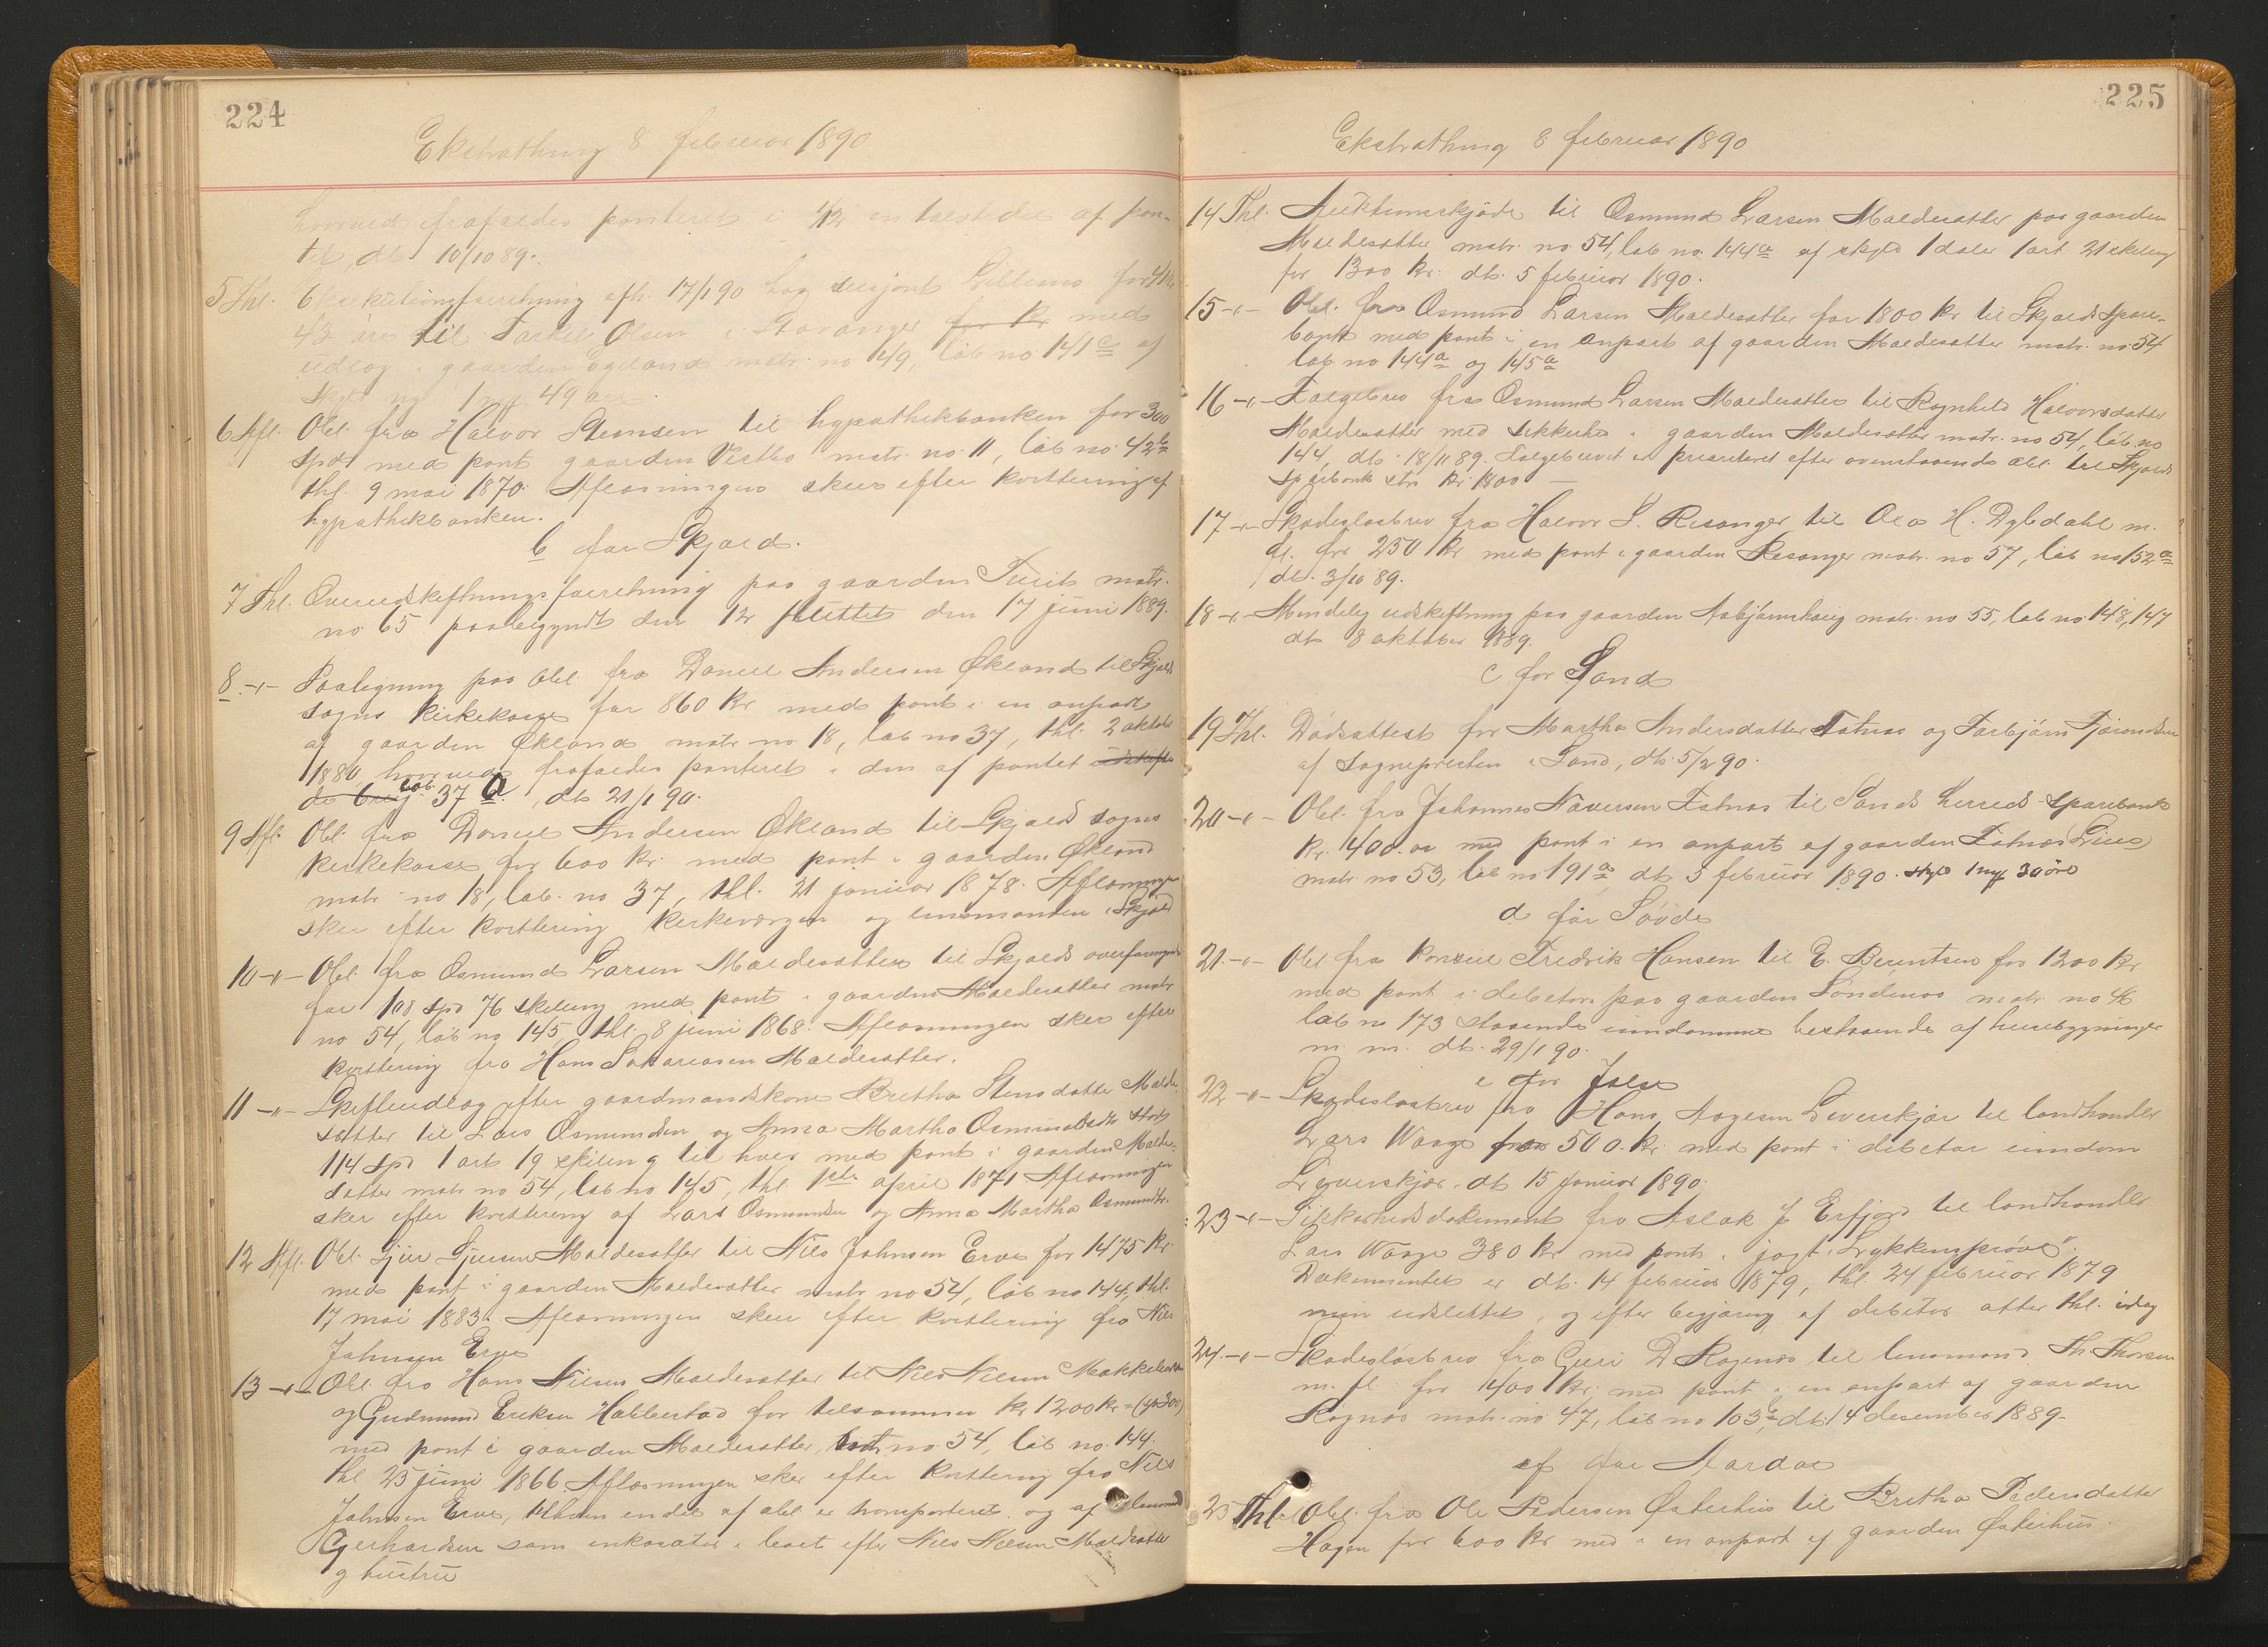 224
Ekstrathing 8 februar 1890
hvorved frafaldes panteret i 1/12 en tolvtedel af pan-
tet, dt. 10/10 89.
5 Thl. Eksekutionsforretning afh. 17/1 90 hos
43 øre til Torkel Olsen i Stavanger for Kr med
udlæg i gaarden matr. no 49, løb no 141 c af
skyld ny 1 mk 49 øre.
6 Afl. Obl. fra Halvor Stensen til hypothekbanken for 300
Spd med pant gaarden Vestbø matr. no 11, løb no. 42 b
thl. 9 mai 1870. Aflæsningen skeer efter kvittering af
hypothekbanken.
b for Skjold.
7 Thl. Overudskiftningsforretning paa gaarden matr.
no 65 paabegyndt den 12 sluttet den 17 juni 1889.
8 -"- Paategning paa obl. fra Daniel Andersen Økland til Skjold
sogns kirkekasse for 860 Kr med pant i en anpart
af gaarden Økland matr no 18, løb no 37, thl. 2 oktober
1880 hvorved frafaldes panteret i den af pantet udskifte
de brug løb. 37 a., dt 21/1 90.
9 Afl. Obl. fra Daniel Andersen Økland til Skjold sogns
kirkekasse for 600 Kr. med pant i gaarden Økland
matr no 18, løb. no 37, thl. 21 januar 1878. Aflæsningen
sker efter kvittering kirkeværgen og lensmanden i Skjold
10 -"- Obl. fra Osmund Larsen Maldesætter til Skjolds overformynderi
for 108 spd 76 skilling med pant i gaarden Maldesætter matr
no 54, løb no 145, thl. 8 juni 1868. Aflæsningen sker efter
kvittering fra Hans Maldesætter.
11 -"- Skifteudlæg efter gaardmandskone Bretha Stensdatter Malde-
sætter til Lars Osmundsen og Anna Martha Osmundsdtr
114 spd 1 ort 19 skilling til hver med pant i gaarden Malde-
sætter matr no 54, løb no 145, thl. 1ste april 1871 Aflæsningen
sker efter kvittering af Lars Osmundsen og Anna Martha Osmundsdtr.
12 Afl. Obl. Maldesætter til Nils Johnsen Erve for 1475 Kr.
med pant i gaarden Maldesætter matr no 54, løb no 144, thl.
17 mai 1883. Aflæsningen skeer efter kvittering fra Nils
Johnsen Erve
13 -"- Obl. fra Hans Nilsen Maldesætter til Nils Nilsen
og Gudmund Eriksen Hobberstad for tilsammen Kr 1200 kr = (sp 300)
med pant i gaarden Maldesætter, matr no 54, løb no. 144.
thl 25 juni 1866. Aflæsningen sker efter kvittering fra Nils
Johnsen Erve, til hvem en del af obl. er transporteret. og af
Gerhardsen som inkasator i boet efter Nils Nilsen Maldesætter
og hustru
225
Ekstrathing 8 februar 1890
14 Thl. Auktionsskjøde til Osmund Larsen Maldesætter paa gaarden
Maldesætter matr. no 54, løb no. 144 a af skyld 1 daler 1 ort 21 skilling
for 1300 Kr. dt. 5 februar 1890.
15 -"- Obl. fra Osmund Larsen Maldesætter for 1800 Kr til Skjold Spare-
bank med pant i en anpart af gaarden Maldesætter matr. no 54
løb no 144 a og 145 a
16 -"- Følgebrev fra Osmund Larsen Maldesætter til Ragnhild Halvorsdatter
Maldesætter med sikkerhed i gaarden Maldesætter matr. no 54, løb no
144, dt. 18/11 89. Følgebrevet er prioriteret efter ovenstaaende obl. til Skjold
Sparebank stor Kr 1800 —
17 -"- Skadesløsbrev fra Halvor S. Risanger til Ola H. Dybdahl m.
fl. for 250 Kr med pant i gaarden Risanger matr. no 57, løb no 152 a
dt. 3/10 89.
18 -"- Mindelig udskiftning paa gaarden matr. no 55, løb no 148, 147
dt 8 oktober 1889.
c for Sand
19 Thl. Dødsattest for Martha Andersdatter Fatnæs og Torbjørn
af sognepresten i Sand, dt. 5/2 90.
20 -"- Obl. fra Johannes Fatnæs til Sands herreds Sparebank
Kr. 400.00 med pant i en anpart af gaarden Fatnæs
matr no 53, løb no 191 a dt 5 februar 1890. skyld 1 mk 30 øre
d for Søvde
21 -"- Obl. fra konsul Fredrik Hansen til E. Berentsen for 1200 Kr
med pant i debitors paa gaarden Søndenaa matr no 46
løb no 173 staaende eiendomme bestaaende af huusbygninger
m. m. dt. 29/1 90.
e for Jelse
22 -"- Skadesløsbrev fra Hans Aagesen til landhandler
Lars Waage for 500 Kr. med pant i debitors eiendom
dt 15 januar 1890.
23 -"- Sikkerhedsdokument fra Aslak J Erfjord til landhandler
Lars Waage 380 Kr med pant i jagt "Lykkensprøve".
Dokumentet er dt. 14 februar 1879, thl. 24 februar 1879
men udslettet, og efter begjæring af debitor atter thl. idag
24 -"- Skadesløsbrev fra Guri D til lensmand Th. Thorsen
m. fl. for 1400 Kr. med pant i en anpart af gaarden
matr. no 47, løb no 163, dt. 14 desember 1889.
f for Aardal
25 Thl. Obl. fra Ole Pedersen Østerhus til Bretha Pedersdatter
Hagen for 600 Kr med i en anpart af gaarden Østerhus